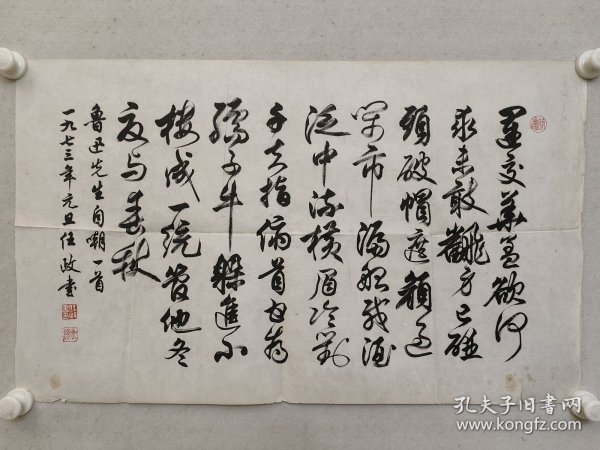 運交華蓋欲何
求未敢飜身已碰
頭破帽遮顏過
鬧市漏船載酒
泛中流橫眉冷對
千夫指俯首甘為
孺子牛躲進小
樓成一統管他冬
夏与春秋
魯迅先生自嘲一首
一九七三年元旦任政書
孔夫子旧书网
kongfz.com